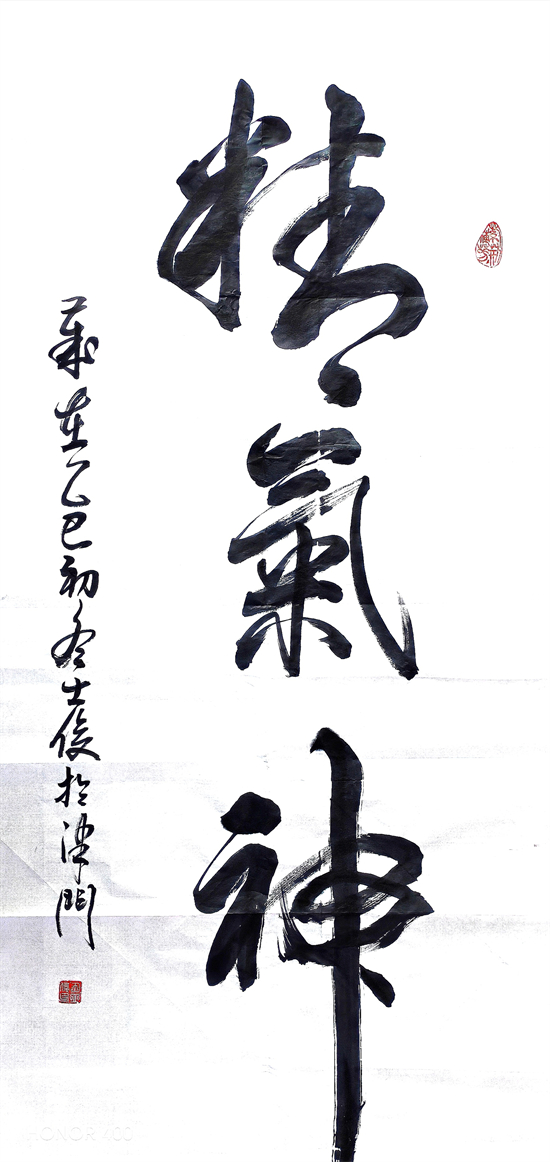 精氣神
歲在乙巳初冬士俊於津門
HONOR 400